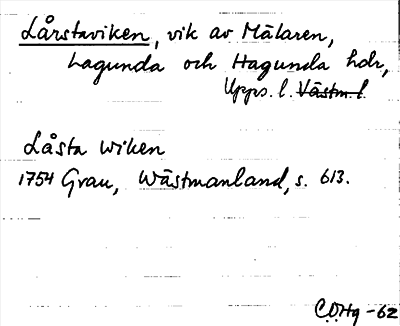 Lårstaviken, vik av Mälaren,
Lagunda och Hagunda hdr,
Upps. l. Västm. l.
Låsta wiken
1754 Grau, Wästmanland, s. 613.
CÖHg -62